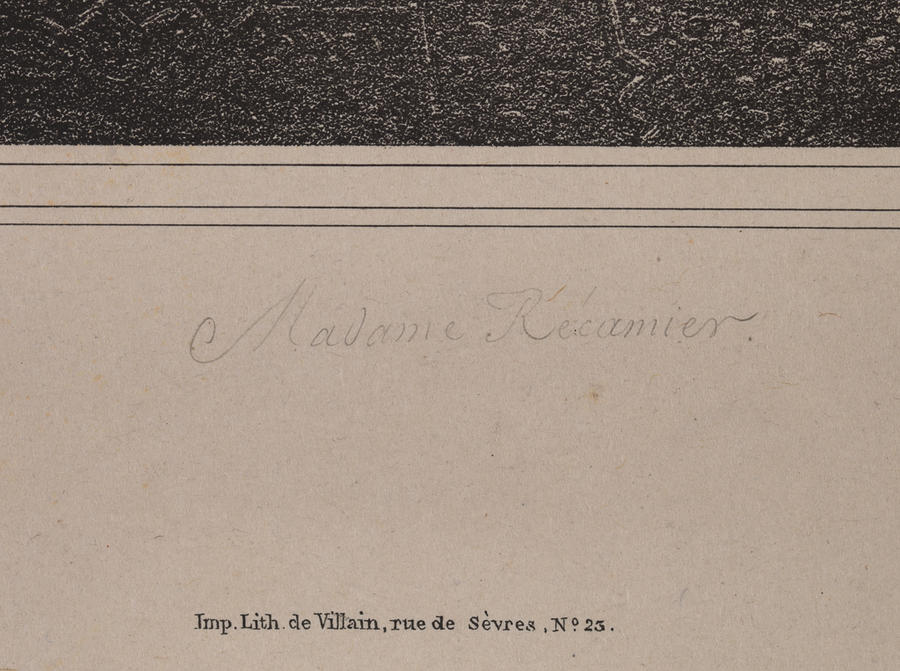 Madame Récamier.
Imp. Lith. de Villain, rue de Sèvres, Nº 23.